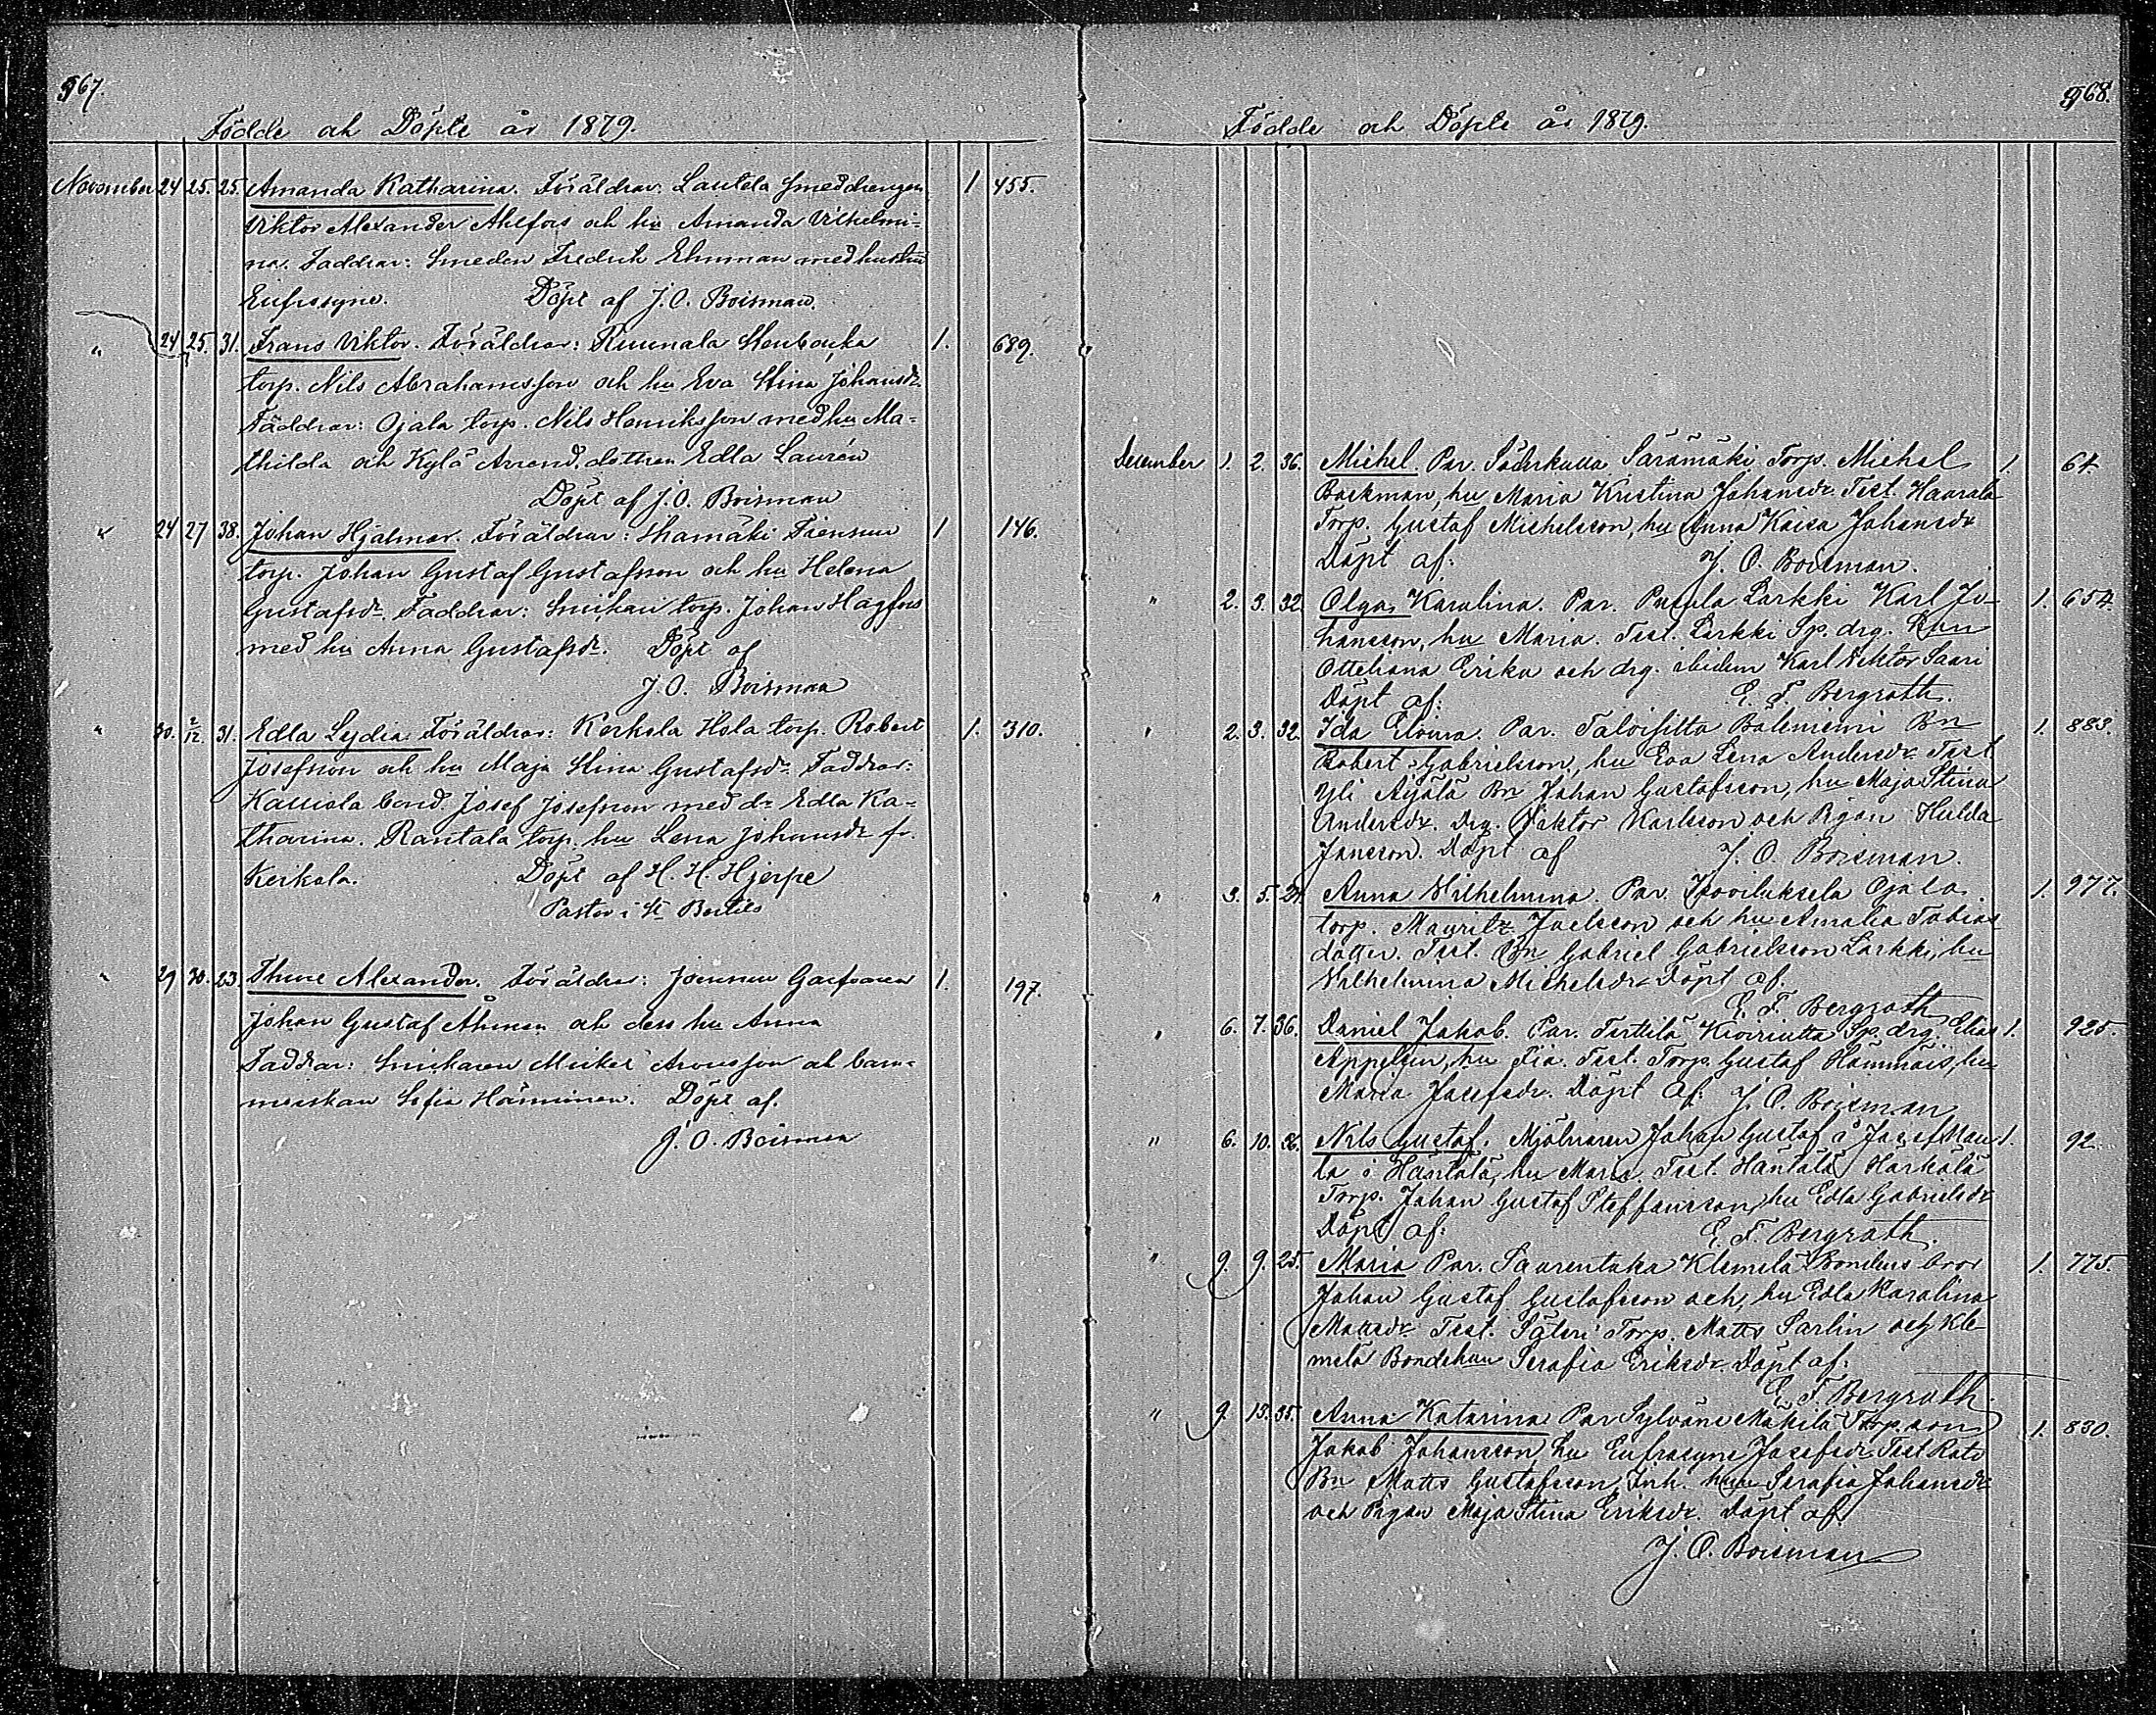 967.
Födde och Döpte år 1879.
November 24 25. 25. Amanda Katharina. Föräldrar: Lautela smeddrengen 1 455.
Viktor Alexander Ahlfors och hu Amanda Vilhelmi-
na. Faddrar: Smeden Fredrik Ehnman med hustru
Eufrosyne. Döpt af J. O. Boisman.
" 24 25. 31. Frans Viktor. Föräldrar: Ruunala 1. 689.
torp. Nils Abrahamsson och hu Eva Stina Johansdr.
Faddrar: Ojala torp. Nils Henriksson med hu Ma-
thilda och Kylä Arrend. dottren Edla Laurén
Döpt af J. O. Boisman
" 24 27 38. Johan Hjalmar. Föräldrar: 1 146.
torp. Johan Gustaf Gustafsson och hu Helena
Gustafsdr. Faddrar: torp. Johan Hagfors
med hu Anna Gustafsdr. Döpt af
J. O. Boisman
" 30. 2/12. 31. Edla Lydia. Föräldrar: Kerkola Hola torp. Robert 1. 310.
Josefsson och hu Maja Stina Gustafsdr. Faddrar:
bond. Josef Josefsson med dr Edla Ka-
tharina. Rantala torp. hu Lena Johansdr fr.
Kerkola. Döpt af H. H. Hjerpe
Pastor i St Bertils
" 29 30. 23. Thure Alexander. Föräldrar: Jonsuu 1. 197.
Johan Gustaf Åhman och dess hu Anna
Faddrar: Snickaren Mickel Aronsson och barn-
morskan Sofia Hänninen. Döpt af.
J. O. Boisman
968.
Födde och Döpte år 1879.
December 1. 2. 36. Michel. Par. Söderkulla Säramäki Torp. Michel 1. 64.
Backman, hu Maria Kristina Johansdr. Test. Haarala
Torp. Gustaf Michelsson, hu Anna Kaisa Johansdr
Döpt af: J. O. Boisman.
" 2. 3. 32. Olga Karolina. Par. Pukula Larkki Karl Jo- 1. 654.
hansson, hu Maria. Test. Larkki Sp. drg.
Otteliana Erika och drg. ibidem Karl Viktor Saari
Döpt af: E. F. Bergroth.
" 2. 3. 32. Ida Elvira. Par. Bn 1. 883.
Robert Gabrielsson, hu Eva Lena Andersdr. Test.
Yli Äijälä Bn Johan Gustafsson, hu Maja Stina
Andersdr. Drg. Viktor Karlsson och Pigan Hulda
Jansson. Döpt af J. O. Boisman.
" 3. 5. 24. Anna Wilhelmina. Par. Isoviluksela Ojala 1. 977.
torp. Mauritz Joelsson och hu Amalia Tobias
dotter. Test. Bn Gabriel Gabrielsson Larkki, hu
Vilhelmina Michelsdr Döpt af.
E. F. Bergroth
" 6. 7. 36. Daniel Jakob. Par. Terttilä Sp. drg. Elias 1. 925
Appelgren, hu Fia. Test. Torp. Gustaf Hammais, hu
Maria Josefsdr. Döpt af: J. O. Boisman
" 6. 10. 36. Nils Gustaf. Mjölnaren Johan Gustaf å 1. 92.
i Häntälä, hu Maria. Test. Häntälä Härkälä
Torp. Johan Gustaf Steffansson, hu Edla Gabrielsdr
Döpt af: E. F. Bergroth.
" 9. 9. 25. Maria Par. Saurentaka Klemelä Bondens bror 1. 775.
Johan Gustaf Gustafsson och hu Edla Karolina
Mattsdr. Test. Säteri Torp. Matts Sarlin och Kle-
melä Bondehun Serafia Eriksdr. Döpt af:
E. F. Bergroth
" 9. 13. 35. Anna Katarina Par Sylvänä Mäkilä Torp. son 1. 830.
Jakob Johansson, hu Eufrosyne Josefsdr. Test
Bn Matts Gustafsson, Inh. Serafia Johansdr
och Pigan Maja Stina Eriksdr. Döpt af.
J. O. Boisman